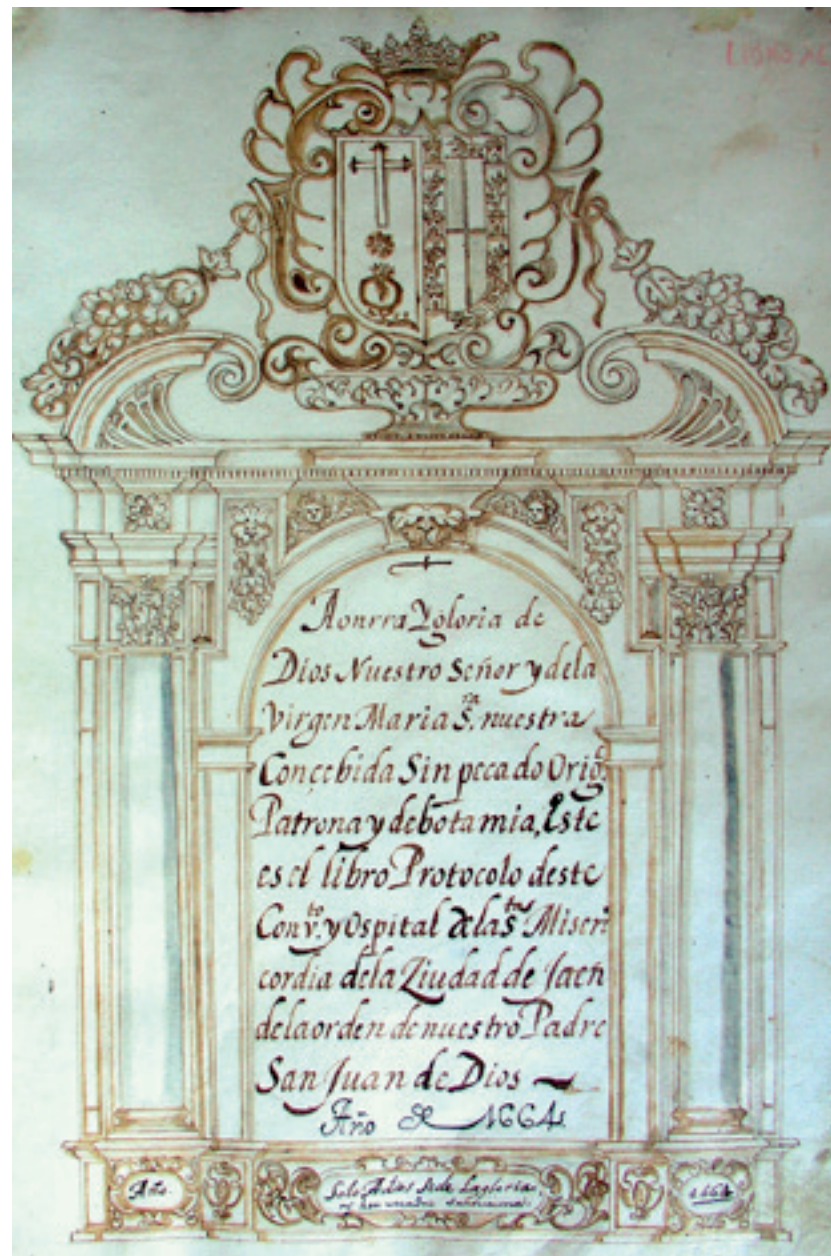 LIBRO
Aonrra Ygloria de
Dios Nuestro Señor y dela
Virgen Maria S.ra nuestra
Conçebida Sin pecado Orig.
Patrona y debota mia, Este
es el libro Protocolo deste
Conv.to y Ospital de la S.ta Miseri
cordia dela Ziudad de Jaen
dela orden de nuestro Padre
San Juan de Dios
Año de 1664
Año.
Solo A dios Sede La gloria
1664